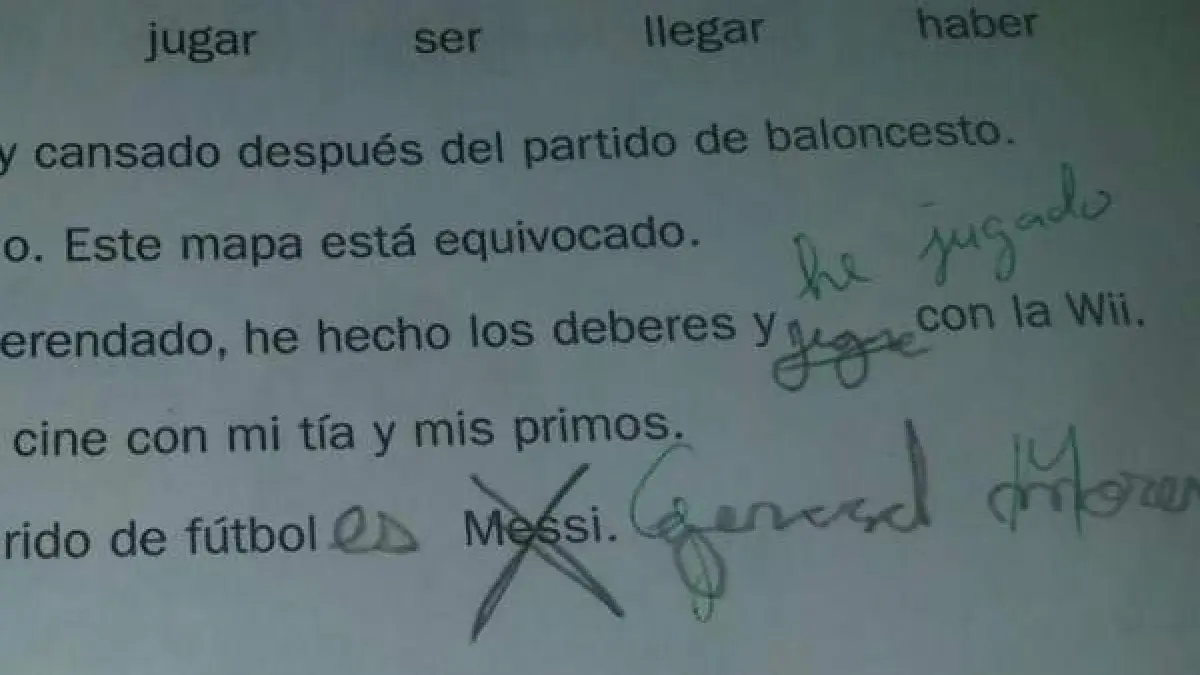 jugar ser llegar haber
y cansado después del partido de baloncesto.
o. Este mapa está equivocado.
he jugado
erendado, he hecho los deberes y jugar con la Wii.
cine con mi tía y mis primos.
rido de fútbol es Messi. Gerard Moren